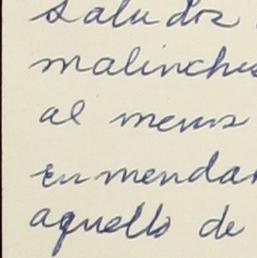 saludos
malinchis
al menos
enmendar
aquello de